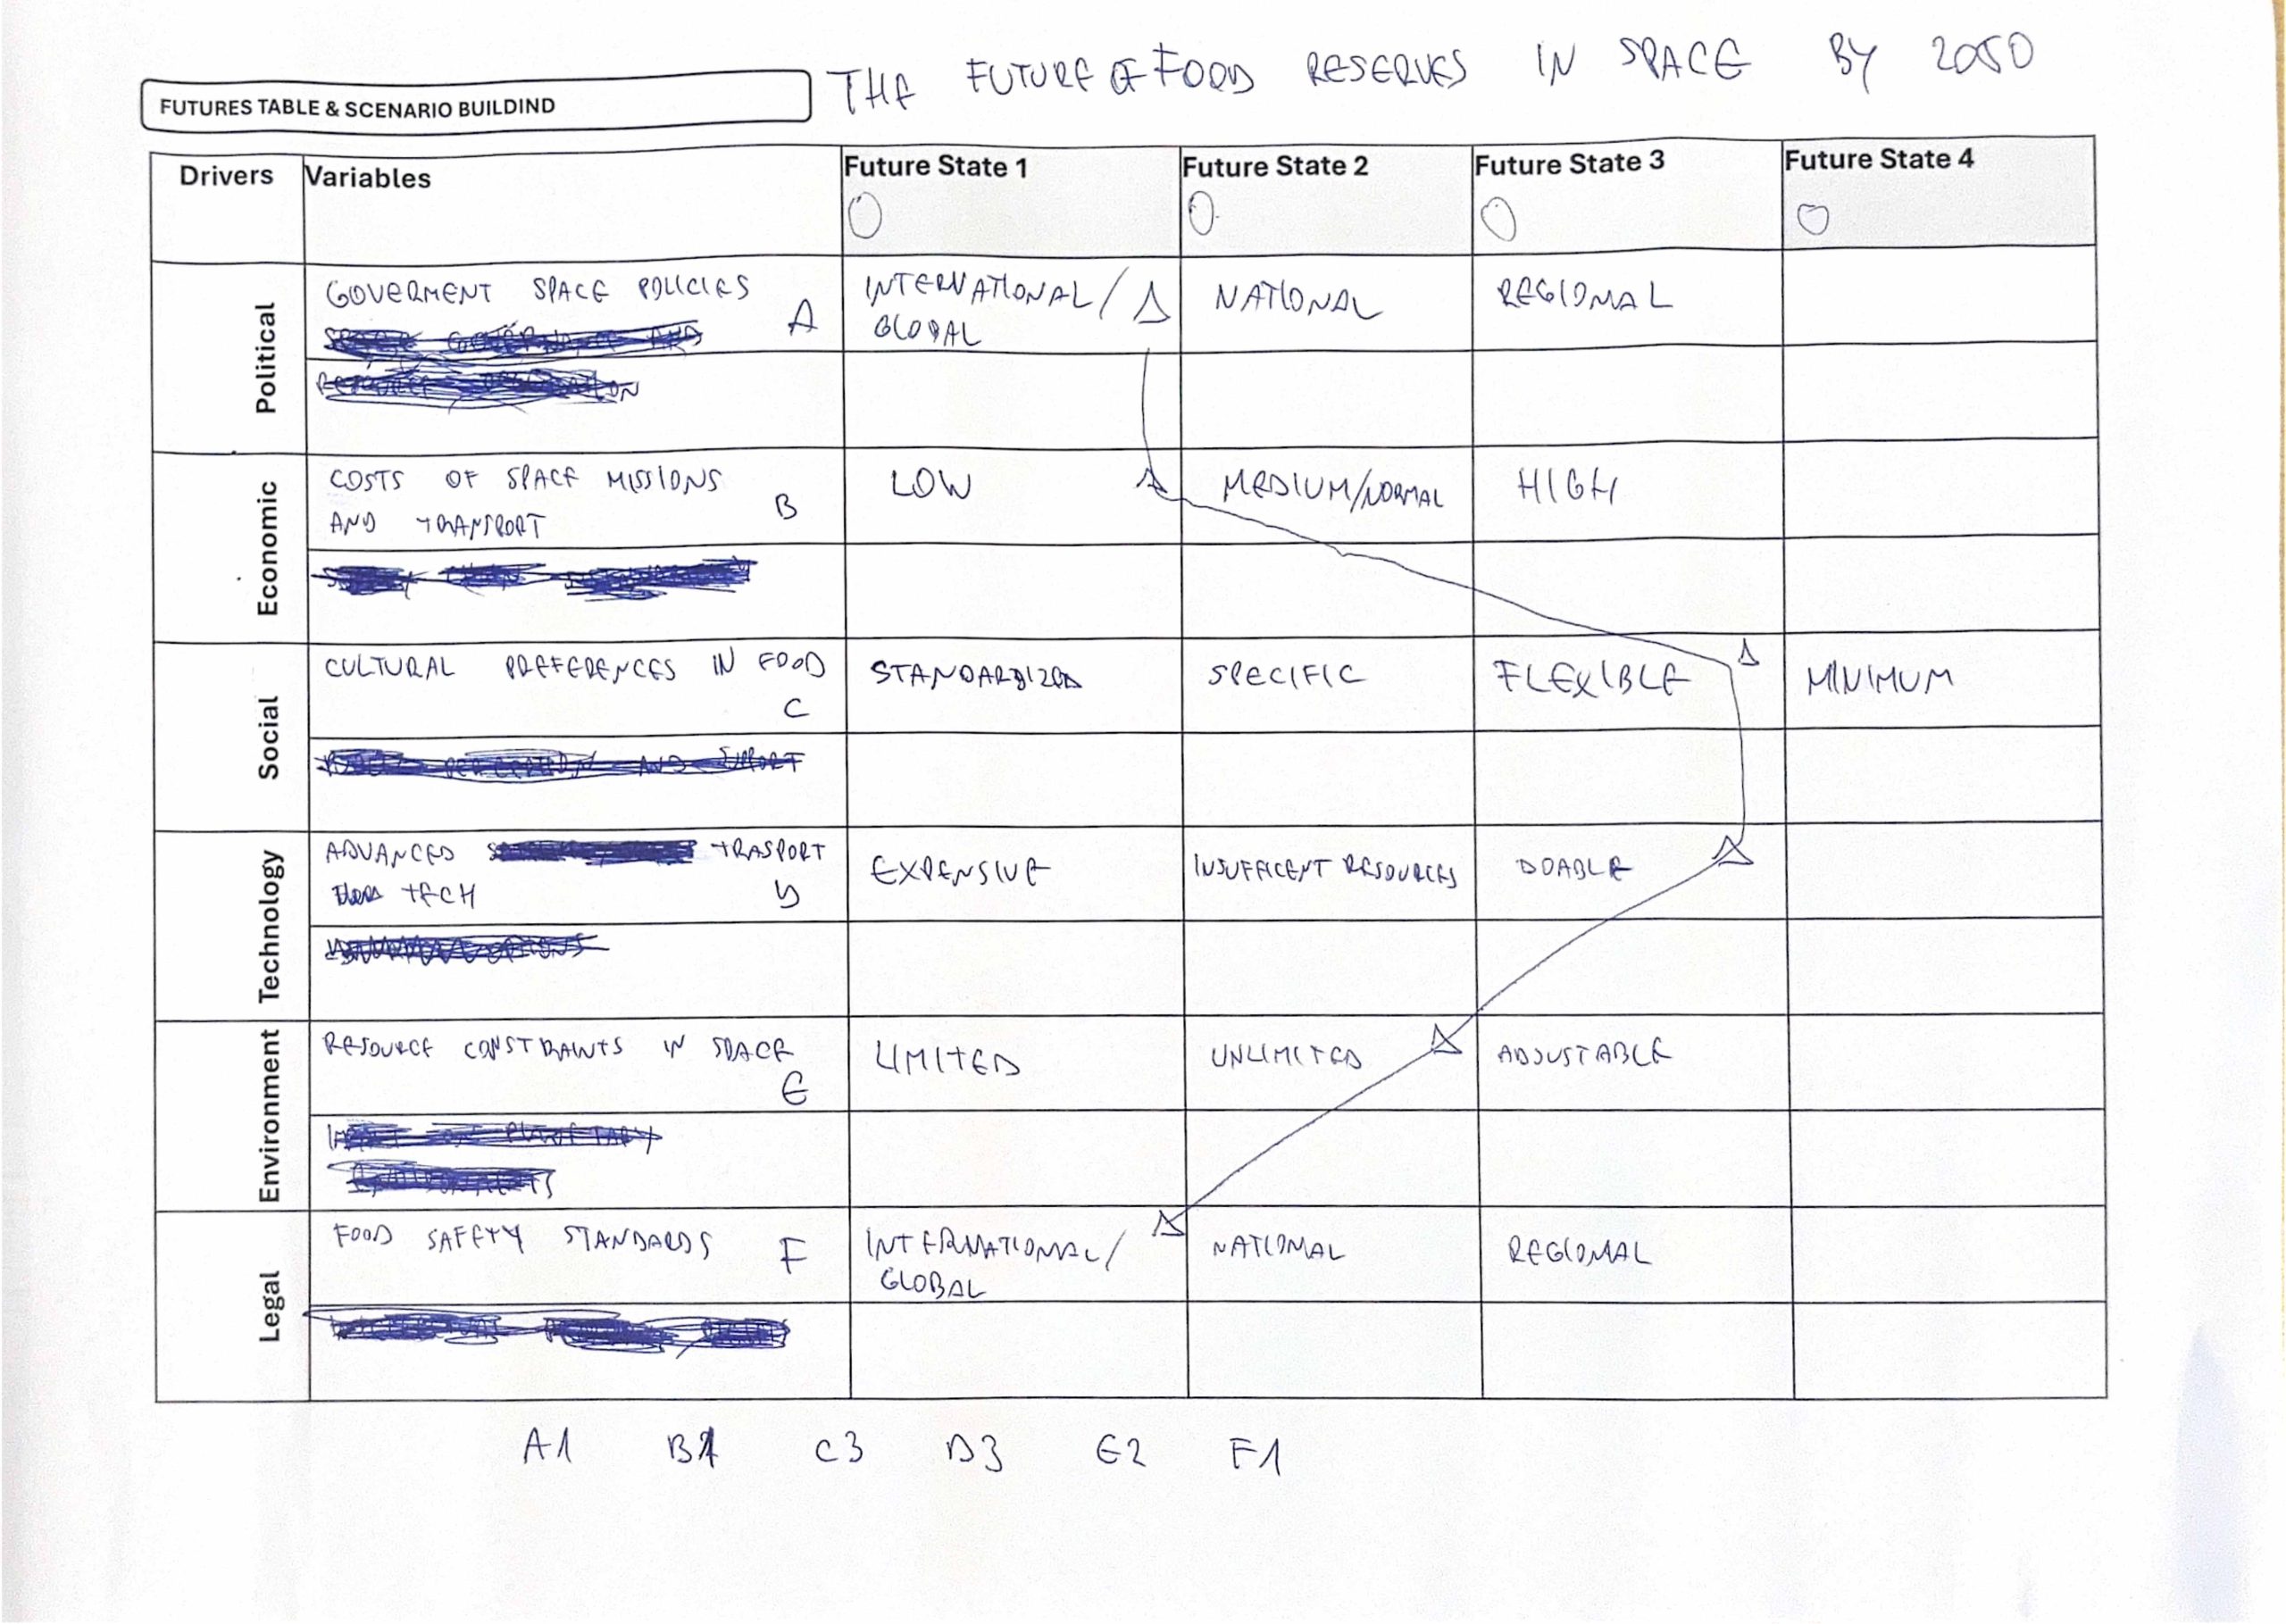 THE FUTURE OF FOOD RESERVES IN SPACE BY 2050
FUTURES TABLE & SCENARIO BUILDIND
Drivers Variables Future State 1 Future State 2 Future State 3 Future State 4
Political
GOVERMENT SPACE POLICIES A
INTERNATIONAL/
GLOBAL
NATIONAL
REGIONAL
Economic
COSTS OF SPACE MISSIONS
AND TRANSPORT B
LOW
MEDIUM/NORMAL
HIGH
Social
CULTURAL PREFERENCES IN FOOD
C
STANDARDIZED
SPECIFIC
FLEXIBLE
MINIMUM
Technology
ADVANCED TRASPORT
TECH D
EXPENSIVE
INSUFFICENT RESOURCES
DOABLE
Environment
RESOURCE CONSTRAINTS IN SPACE
E
LIMITED
UNLIMITED
ADJUSTABLE
Legal
FOOD SAFETY STANDARDS F
INTERNATIONAL/
GLOBAL
NATIONAL
REGIONAL
A1 B1 C3 D3 E2 F1